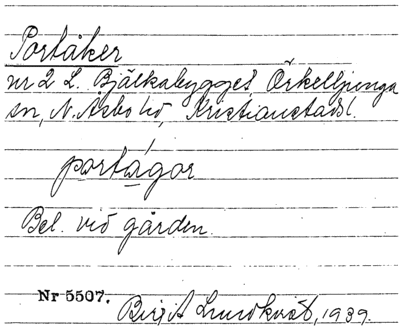 Portåker
nr 2 L. Bjälkabygget, Örkelljunga
sn, N. Åsbo hd, Kristianstads l.
portågor
Bel. vid gården.
Nr 5507.
Birgit Lundkvist, 1939.